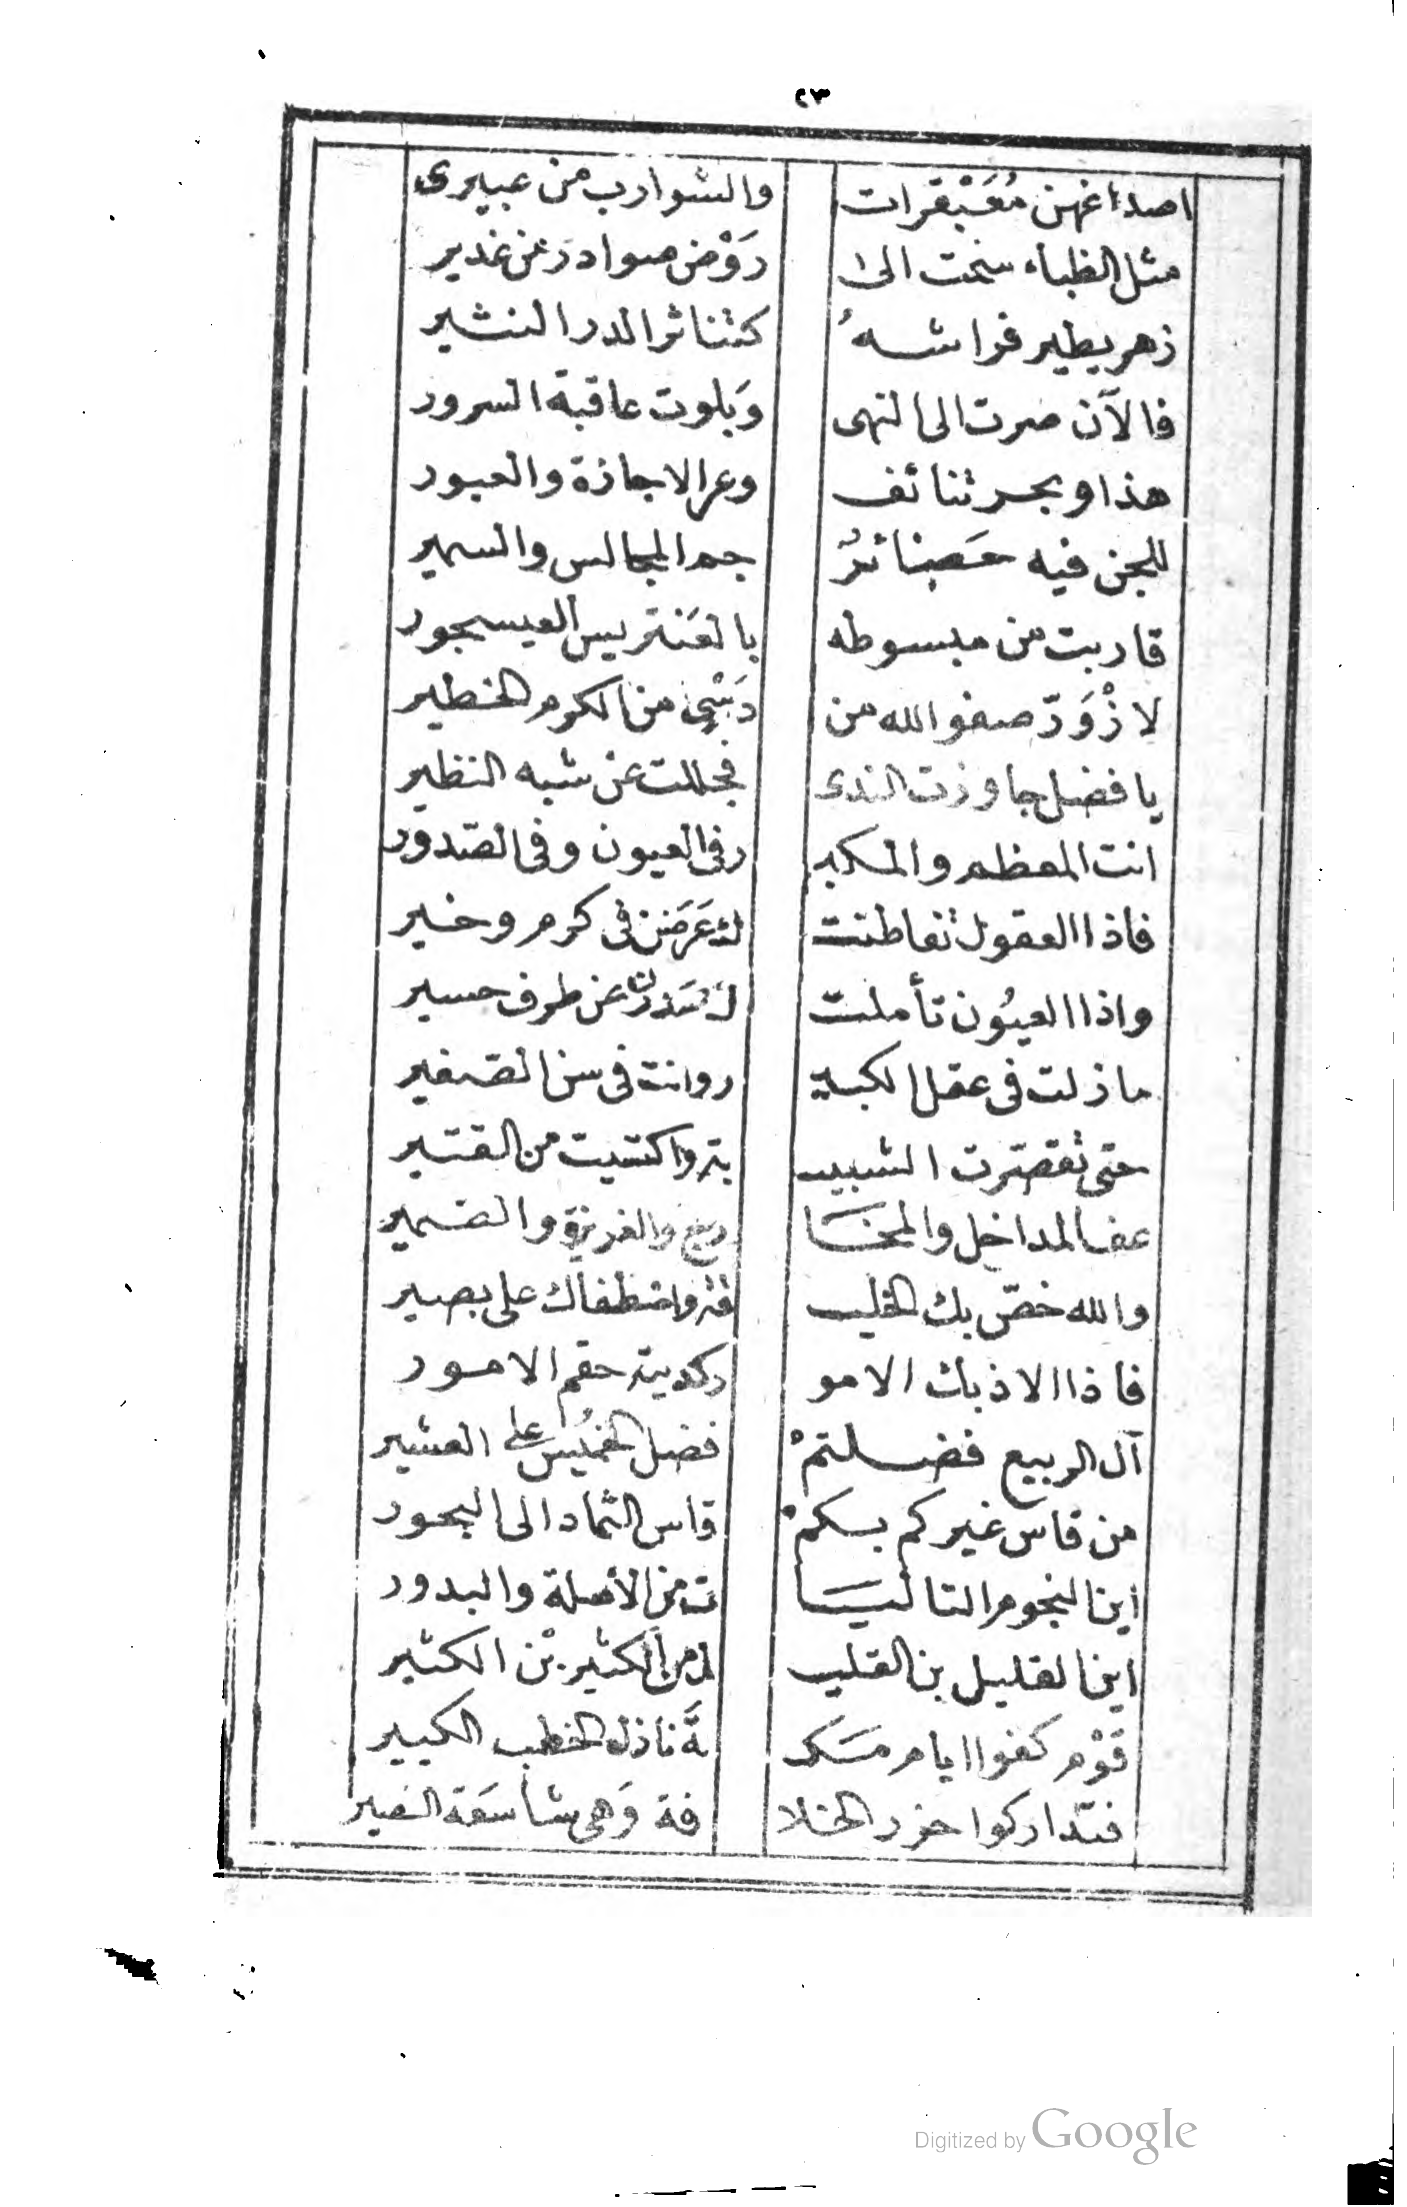 ٢٣
اصداغهن مُعَقْرَبات والشوارب من عبيرى
مثل الظباء سنحت الى رَوْض صوادر عن غدير
زهر يطير فراشهُ كتناثر الدر النثير
فالآن صرت الى النهى وَبلوت عاقبة السرور
هذا وبحر تنائف وعر الاجازة والعبور
للجن فيه حَضنائرُ جم المجالس والسمير
قاربت من مبسوطه بالعَنتريس العيسجور
لازْوَرّ صفو الله من من الكرم الخطير
يا فضل جاوزت الندى فجللت عن شبه النظير
انت المعظم والمكبر فى العيون وفى الصّدور
فاذا العقول تفاطنت لك عَرَضن فى كرم وخير
واذا العيُون تأملت عن طرف حسير
ما زلت فى عقل الكبير وانت فى سن الصغير
حتى تقصّرت الشبيبة واكتسيت من القتير
عف المداخل والمخارج والغريزة والضمير
والله خصّ بك الخليفة واصطفاك على بصير
فاذا الاذ بك الامور حقم الامور
آل الربيع فضلتمْ فضل الخميُس على العشير
من قاس غيركم بكمْ قاس الثماد الى البحور
اين النجوم التاليات من الأهلة والبدور
اين القليل بن القليل من الكثير بْن الكثير
قوْم كفوا ايام مَكّة نازل الخطب الكبير
فتداركوا حزر الخلافة وَهى شاسَعة النصير
Digitized by Google